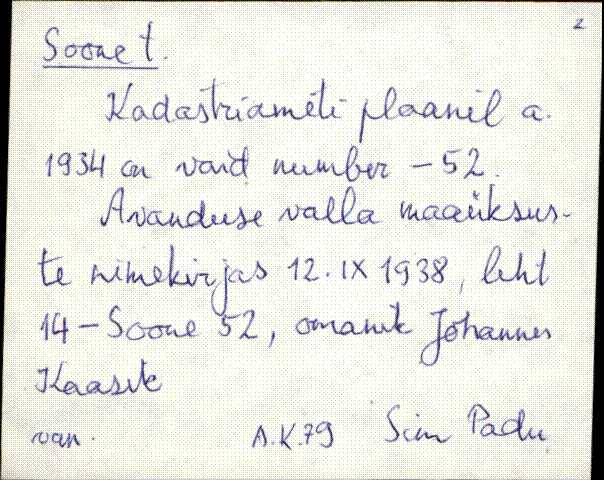 2
Soone t.
Kadastriameti plaanil a.
1934 on vaid number - 52.
Avanduse valla maaüksus-
te nimekirjas 12. IX 1938, leht
14 - Soone 52, omanik Johannes
Kaasik
van. A.K. 79 Siim Padu